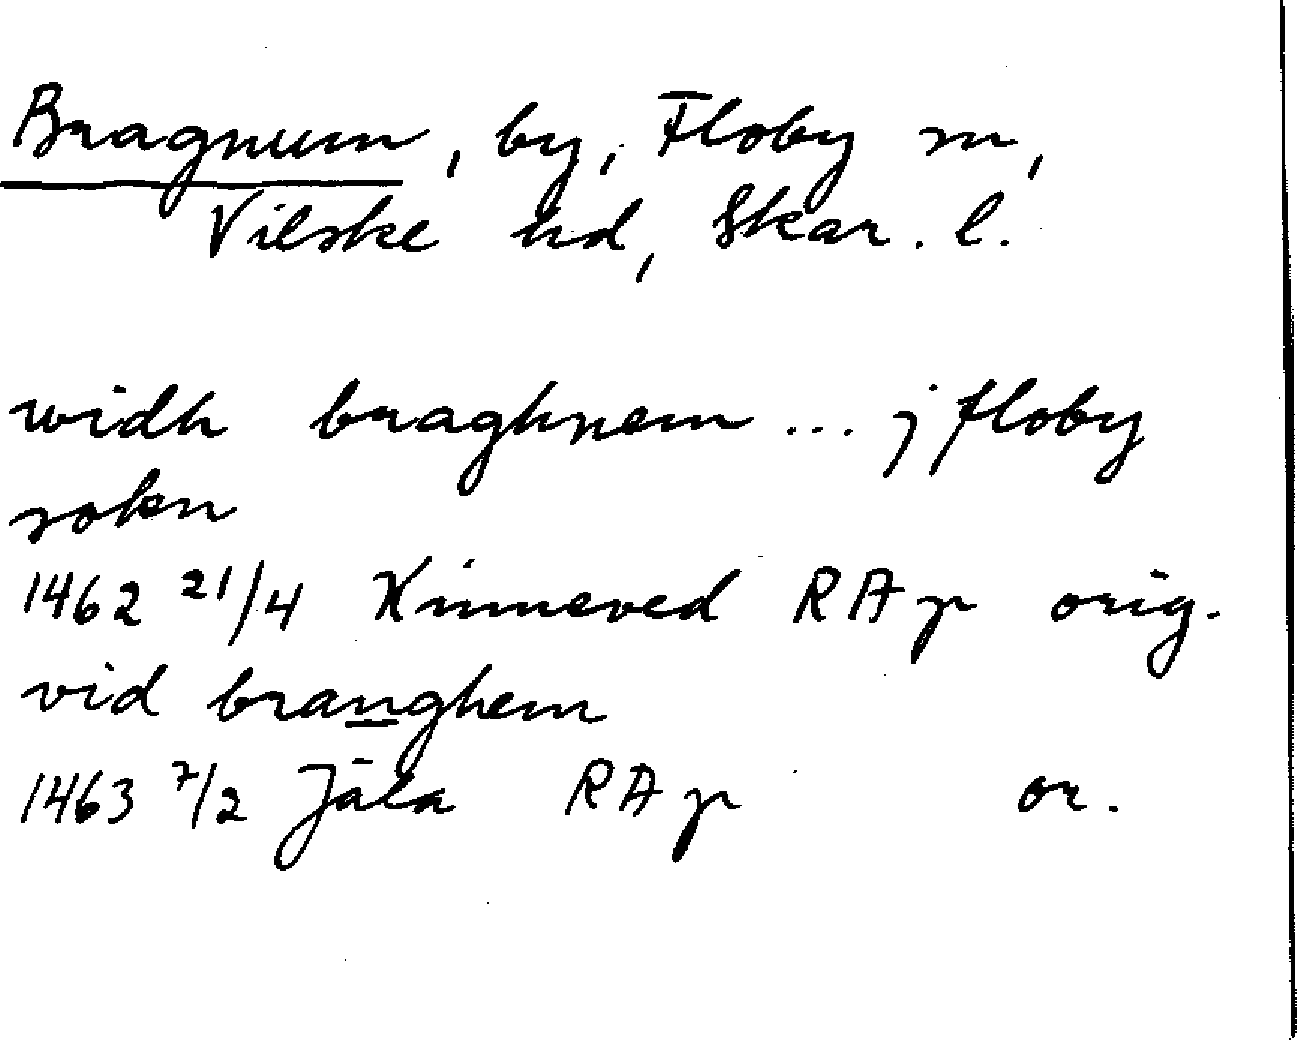 Bragnum, by, Floby sn,
Vilske hd, Skar. l.
widh braghnem ... j floby
sokn
1462 21/4 Kinneved RAp orig.
vid branghem
1463 7/2 Jäla RAp or.